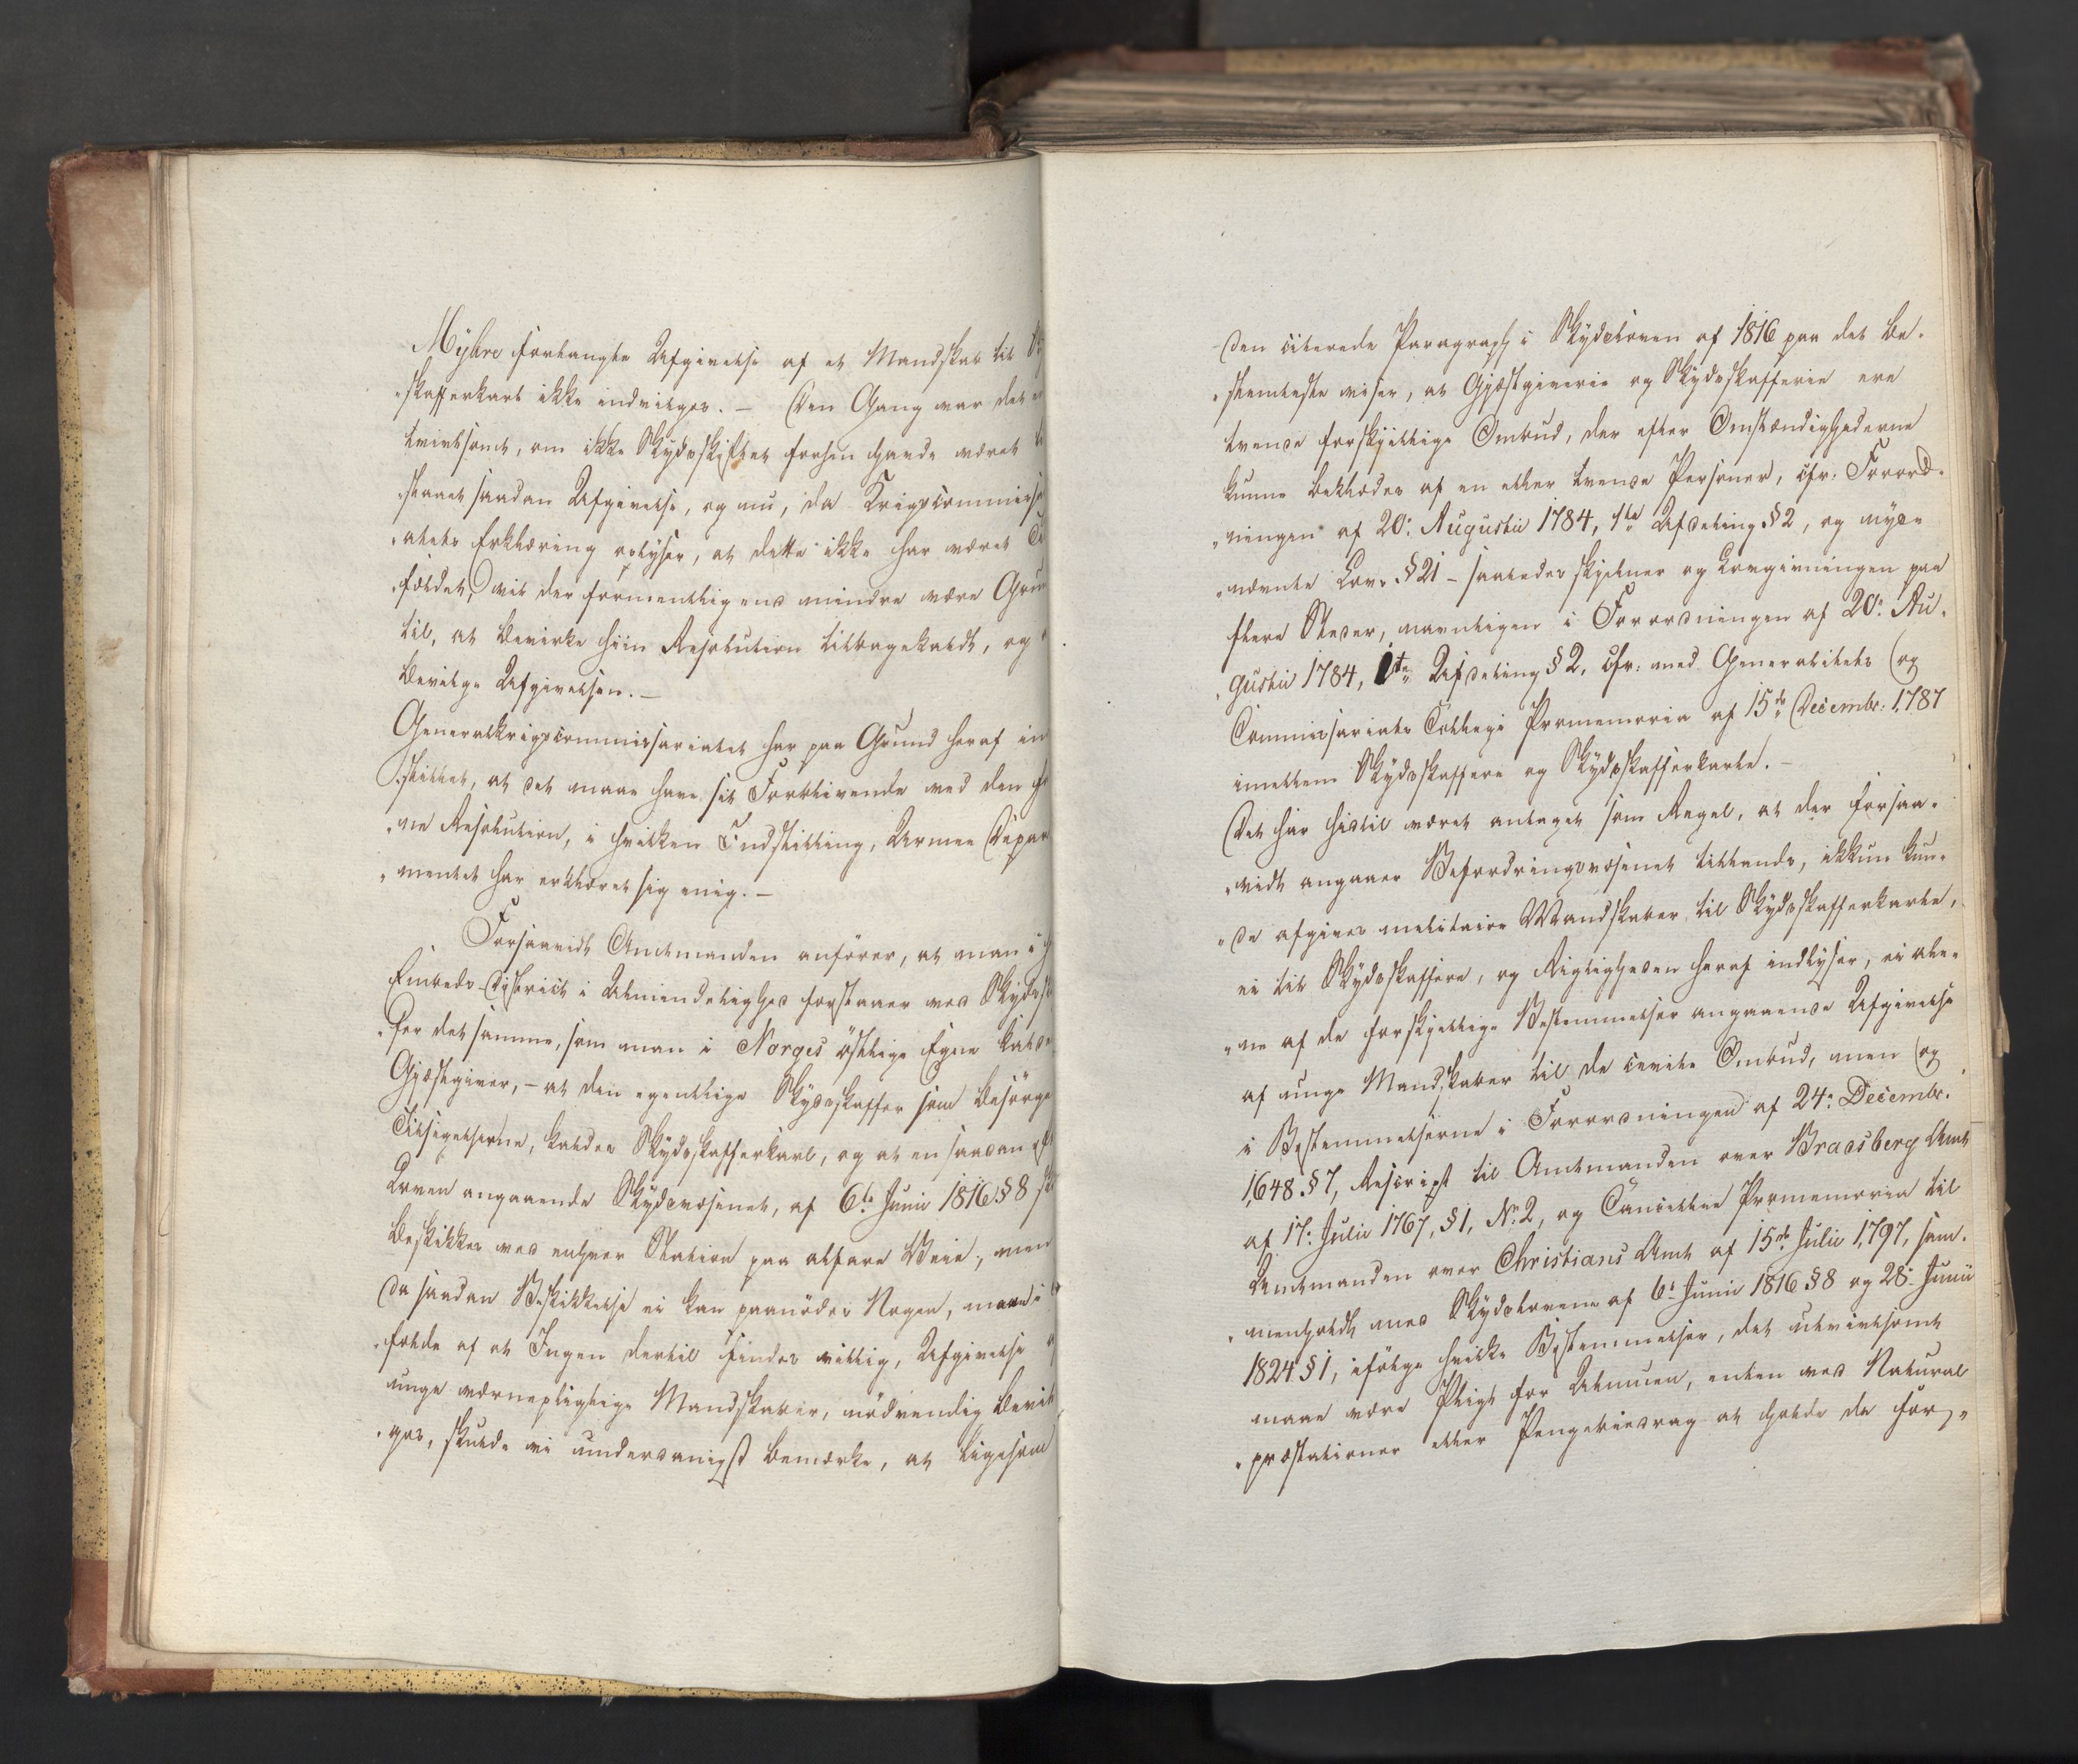 Myhre forlangte Afgivelse af et Mandskab til
„skafferkarl ikke indvilges. – Den Gang var det
tvivlsomt, om ikke Skydsskiftet forhen havde været
„staaet saadan Afgivelse, og nu, da Krigscommissa
„atets Erklæring oplyser, at dette ikke har været Ti
„fældet, vil der formentligen end mindre være Grun
til, at bevirke hiin Resolution tilbagekaldt, og
bevilge Afgivelsen. –
Generalkrigscommissariatet har paa Grund heraf in
„stillet, at det maae have sit Forblivende ved den
„ne Resolution, i hvilken Indstilling, Armee Depar
„mentet har erklæret sig enig. –
Forsaavidt Amtmanden anfører, at man i
Embeds-District i Almindelighed forstaaer ved Skydssk
„fer det samme, som man i Norges östlige Egne kalde
Gjæstgiver, – at den egentlige Skydsskaffer som besørge
Tilsigelserne, kaldes Skydsskafferkarl, og at en saadan
Loven angaaende Skydsvæsenet, af 6te Junii 1816 § 8
beskikkes ved enhver Station paa alfare Veie, men
da saadan Beskikkelse ei kan paanödes Nogen, maae i
„fælde af at Ingen dertil findes villig, Afgivelse
unge værnepligtige Mandskaber, nödvendig bevil
„ges, skulde vi underdanigst bemærke, at ligesom
den citerede Paragraph i Skydsloven af 1816 paa det be„
„stemteste viser, at Gjæstgiverie og Skydsskafferie ere
tvende forskjellige Ombud, der efter Omstændighederne
kunne beklædes af en eller tvende Personer, cfr: Forord„
„ningen af 20: Augustii 1784, 1ste Afdeling § 2, og nys„
„nævnte Lovs § 21 – saaledes skjelner og Lovgivningen paa
flere Steder, navnligen i Forordningen af 20: Au„
„gustii 1784, 1ste Afdeling § 2, cfr: med Generalitets og
Commissariats Collegii Promemoria af 15de Decembr: 1787
imellem Skydsskaffere og Skydsskafferkarle. –
Det har hidtil været antaget som Regel, at der forsaa„
„vidt angaaer Befordringsvæsenet tillands, ikkun kun„
„de afgives militaire Mandskaber til Skydsskafferkarle,
ei til Skydsskaffere, og Rigtigheden heraf indlyser, ei ale„
„ne af de forskjellige Bestemmelser angaaende Afgivelse
af unge Mandskaber til de civile Ombud, men og
i Bestemmelserne i Forordningen af 24: Decembr:
1648 § 7, Rescript til Amtmanden over Bradsberg Amt
af 17: Julii 1767, § 1, No 2, og Cancellie Promemoria til
Amtmanden over Christians Amt af 15de Julii 1797, sam„
„menholdt med Skydslovene af 6: Junii 1816 § 8 og 28: Junii
1824 § 1, ifölge hvilke Bestemmelser, det utvivlsomt
maae være Pligt for Almuen, enten ved Natural
„præstationer eller Pengebidrag at holde de for„